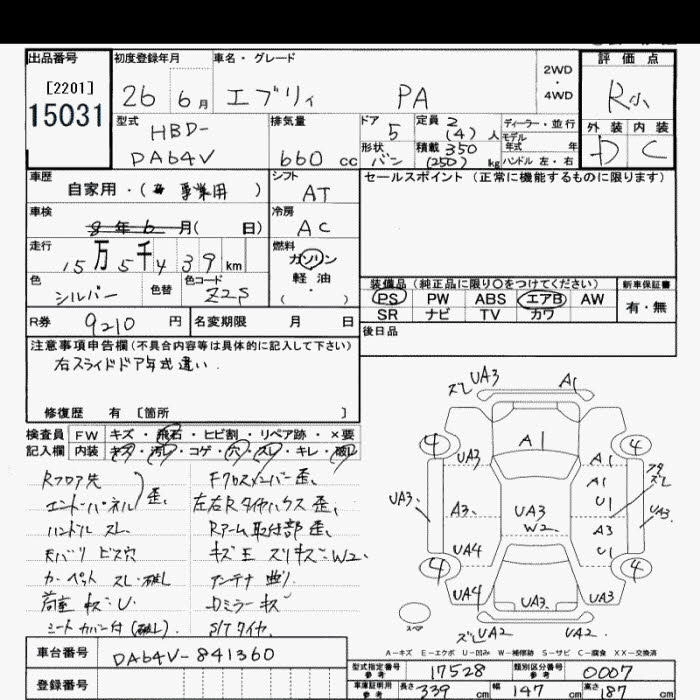 出品番号
[2201]
15031
初度登録年月
26 6月
車名・グレード
エブリィ PA
2WD
・
4WD
評価点
R小
外装 内装
D C
型式
HBD-
DA64V
排気量
660 cc
ドア
5
形状
バン
定員 2
(4)人
積載 350
(250) kg
ディーラー・並行
モデル
年式 年
ハンドル 左・右
車歴
自家用・( 事業用 )
シフト
AT
セールスポイント (正常に機能するものに限ります)
車検
8年6月( 日)
冷房
AC
走行
15万5千439km
燃料
ガソリン
軽油
( ・ )
色
シルバー
色替
色コード
Z2S
装備品(純正品に限り○をつけてください)
PS PW ABS エアB AW
SR ナビ TV カワ
新車保証書
有・無
R券 9210 円
名変期限 月 日
後日品
注意事項申告欄(不具合内容等は具体的に記入して下さい)
右スライドドア年式違い.
修復歴 有 [箇所 ]
検査員
記入欄
FW キズ・飛石・ヒビ割・リペア跡・×要
内装 キズ・汚レ・コゲ・穴・スレ・キレ・破レ
Rフロア先
エンドーパネル 歪、
ハンドル スレ.
天バリ ビス穴
カーペット スレ・破レ
荷室 キズ・U.
シートカバー付(破レ).
Fクロスメンバー歪、
左右Rタイヤハウス 歪、
Rアーム取付部 歪、
キズ王 スリキズ・W2、
アンテナ 曲り.
Dミラーキズ
S/Tタイヤ.
ズレ UA3 A1
4 A1 4
UA3 A1
UA3. A3. UA3 U1 UA3.
W2. A3
UA4 U1
4 4
UA4 UA3. UA3
スペア
ズレ UA2 UA2.
A-キズ E-エクボ U-凹み W-補修跡 S-サビ C-腐食 XX-交換済
車台番号 DA64V-841360
登録番号
型式指定番号
参考
17528
類別区分番号
参考
0007
車庫証明用
参考
長さ 339 cm 幅 147 cm 高さ 187 cm